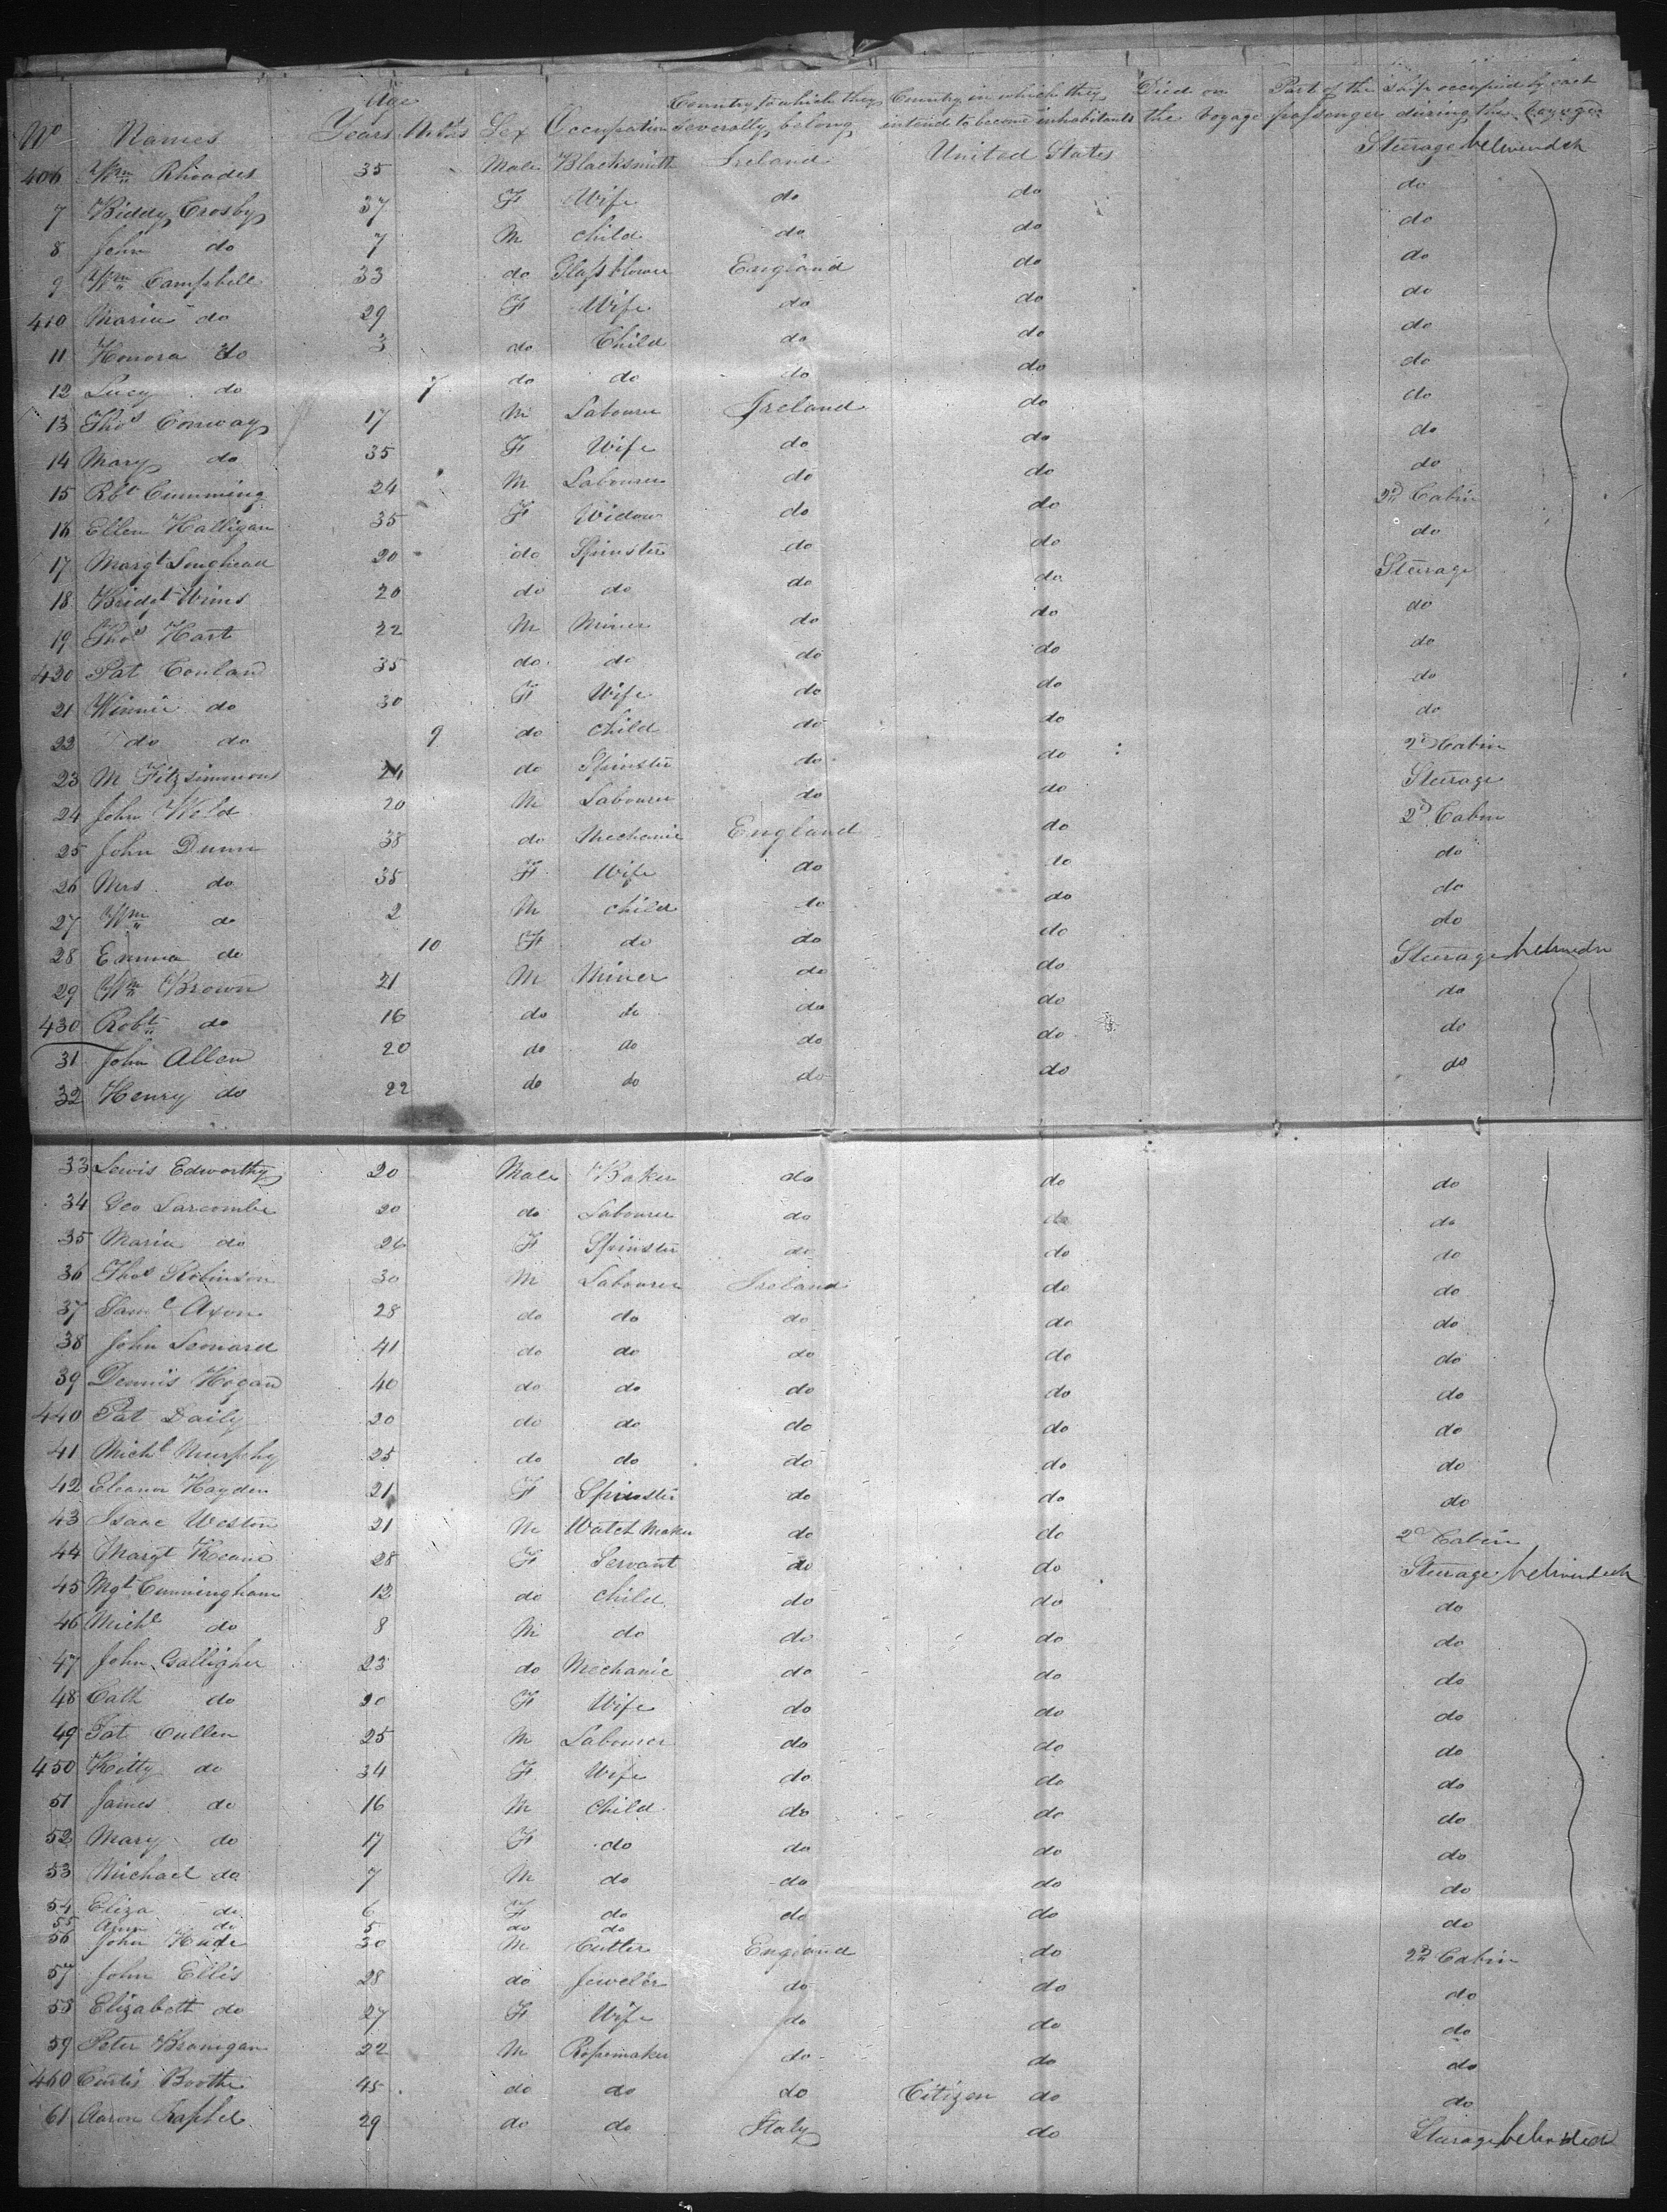 Age
Country to which they Country in which they Died on Part of the Ship occupied by each
No Names Years Mths Sex Occupation severally belong intend to become inhabitants the Voyage passenger during the voyage
406 Wm Rhoades 35 Male Blacksmith Ireland United States Steerage between deck
7 Biddy Crosby 37 F Wife do do do
8 John do 7 M child do do do
9 Wm Campbell 33 do Glass blower England do do
410 Maria do 29 F Wife do do do
11 Honora do 3 do Child do do do
12 Lucy do 7 do do do do do
13 Thos Conway 17 M Labourer Ireland do do
14 Mary do 35 F Wife do do do
15 Rbt Cumming 24 M Labourer do do do
16 Ellen Halligan 35 F Widow do do 2d Cabin
17 Margt Loughead 20 do Spinster do do do
18 Bridgt Wims 20 do do do do Steerage
19 Thos Hart 22 M Miner do do do
420 Pat Conland 35 do do do do do
21 Winnie do 30 F Wife do do do
22 do do 9 do child do do do
23 M Fitzsimmons 24 do Spinster do do 2d Cabin
24 John Weld 20 M Labourer do do Steerage
25 John Dunn 38 do Mechanic England do 2d Cabin
26 Mrs do 35 F Wife do do do
27 Wm do 2 M child do do do
28 Emma do 10 F do do do do
29 Wm Brown 21 M Miner do do Steerage between
430 Robt do 16 do do do do do
31 John Allen 20 do do do do do
32 Henry do 22 do do do do do
33 Lewis Edworthy 20 Male Baker do do do
34 Geo Larcombe 20 do Labourer do do do
35 Maria do 26 F Spinster do do do
36 Thos Robinson 30 M Labourer Ireland do do
37 Saml Axon 28 do do do do do
38 John Leonard 41 do do do do do
39 Dennis Hogan 40 do do do do do
440 Pat Daily 20 do do do do do
41 Michl Murphy 25 do do do do do
42 Eleanor Hayden 21 F Spinster do do do
43 Isaac Weston 21 M Watch Maker do do 2d Cabin
44 Margt Keane 28 F Servant do do Steerage between deck
45 Mgt Cunningham 12 do child do do do
46 Michl do 8 M do do do do
47 John Galligher 23 do Mechanic do do do
48 Cath do 20 F Wife do do do
49 Pat Cullen 25 M Labourer do do do
450 Kitty do 34 F Wife do do do
51 James do 16 M Child do do do
52 Mary do 17 F do do do do
53 Michael do 7 M do do do do
54 Eliza do 6 F do do do do
55 Ann do 5 do do
56 John Hude 30 M Cutler England do 2d Cabin
57 John Ellis 28 do Jeweler do do do
58 Elizabeth do 27 F Wife do do do
59 Peter Branigan 22 M Ropemaker do do do
460 Curtis Booth 45 do do do Citizen do do
61 Aaron Raphel 29 do do Italy do Steerage between deck